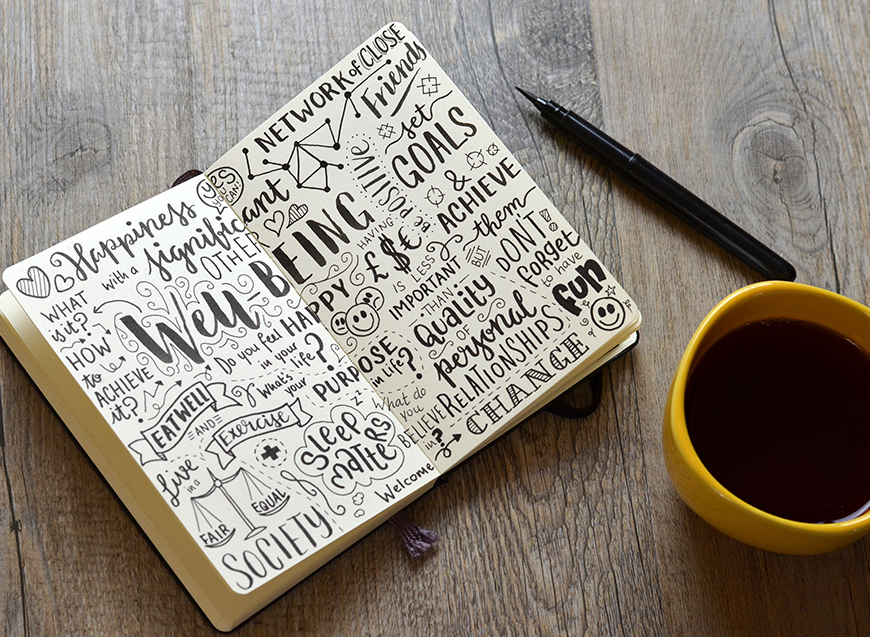 NETWORK of CLOSE
Friends
YES
YOU
CAN!
Happiness
with a significant
OTHER
WHAT
is it?
Well-BEING
HOW
to
ACHIEVE
it?
Do you feel HAPPY
in your
life?
What's
your PURPOSE
in life?
EAT WELL
AND
Exercise
Sleep
matters
z z
Live
in a
FAIR
EQUAL
SOCIETY
Welcome
CHANGE
set
GOALS
& ACHIEVE
them
BUT
DON'T
forget
to have
fun
POSITIVE
HAVING
£$€
IS LESS
IMPORTANT
THAN
Quality
of personal
RELATIONSHIPS
What do
you
BELIEVE
in?